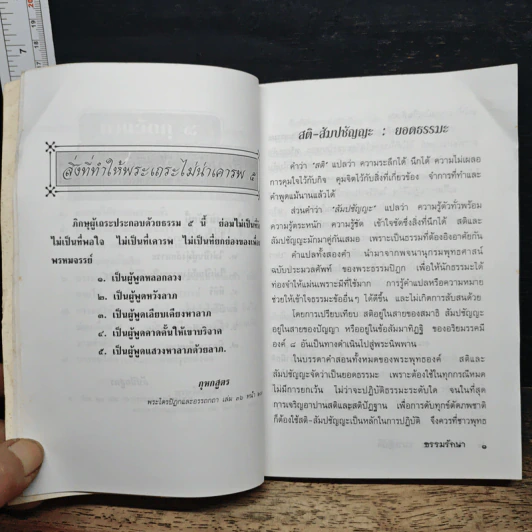 สิ่งที่ทำให้พระเถระไม่น่าเคารพ ๕
ภิกษุผู้เถระประกอบด้วยธรรม ๕ นี้ ย่อมไม่เป็นที่
ไม่เป็นที่พอใจ ไม่เป็นที่เคารพ ไม่เป็นที่ยกย่องของ
พรหมจรรย์
๑. เป็นผู้พูดหลอกลวง
๒. เป็นผู้พูดหวังลาภ
๓. เป็นผู้พูดเลียบเคียงหาลาภ
๔. เป็นผู้พูดคาดคั้นให้เขาบริจาค
๕. เป็นผู้พูดแสวงหาลาภด้วยลาภ.
กุหกสูตร
พระไตรปิฎกและอรรถกถา เล่ม ๓๖ หน้า
สติ-สัมปชัญญะ : ยอดธรรมะ
คำว่า "สติ" แปลว่า ความระลึกได้ นึกได้ ความไม่เผลอ
การคุมใจไว้กับกิจ คุมจิตไว้กับสิ่งที่เกี่ยวข้อง จำการที่ทำและ
คำพูดแม้นานแล้วได้
ส่วนคำว่า "สัมปชัญญะ" แปลว่า ความรู้ตัวทั่วพร้อม
ความรู้ตระหนัก ความรู้ชัด เข้าใจชัดซึ่งสิ่งที่นึกได้ สติและ
สัมปชัญญะมักมาคู่กันเสมอ เพราะเป็นธรรมที่ต้องอิงอาศัยกัน
คำแปลทั้งสองคำ นำมาจากพจนานุกรมพุทธศาสน์
ฉบับประมวลศัพท์ ของพระธรรมปิฎก เพื่อให้นักธรรมะได้
ท่องจำให้แม่นเพราะมีที่ใช้มาก การรู้คำแปลหรือความหมาย
ช่วยให้เข้าใจธรรมะข้ออื่นๆ ได้ดีขึ้น และไม่เกิดการสับสนด้วย
โดยการเปรียบเทียบ สติอยู่ในสายของสมาธิ สัมปชัญญะ
อยู่ในสายของปัญญา หรืออยู่ในข้อสัมมาทิฏฐิ ของอริยมรรคมี
องค์ ๘ อันเป็นทางดำเนินไปสู่พระนิพพาน
ในบรรดาคำสอนทั้งหมดของพระพุทธองค์ สติและ
สัมปชัญญะจัดว่าเป็นยอดธรรมะ เพราะต้องใช้ในทุกกรณีหมด
ไม่มีการยกเว้น ไม่ว่าจะปฏิบัติธรรมะระดับใด จนในที่สุด
การเจริญอานาปานสติและสติปัฏฐาน เพื่อการดับทุกข์ดับภพชาติ
ก็ต้องใช้สติ-สัมปชัญญะเป็นหลักในการปฏิบัติ จึงควรที่ชาวพุทธ
ธรรมรักษา ๑